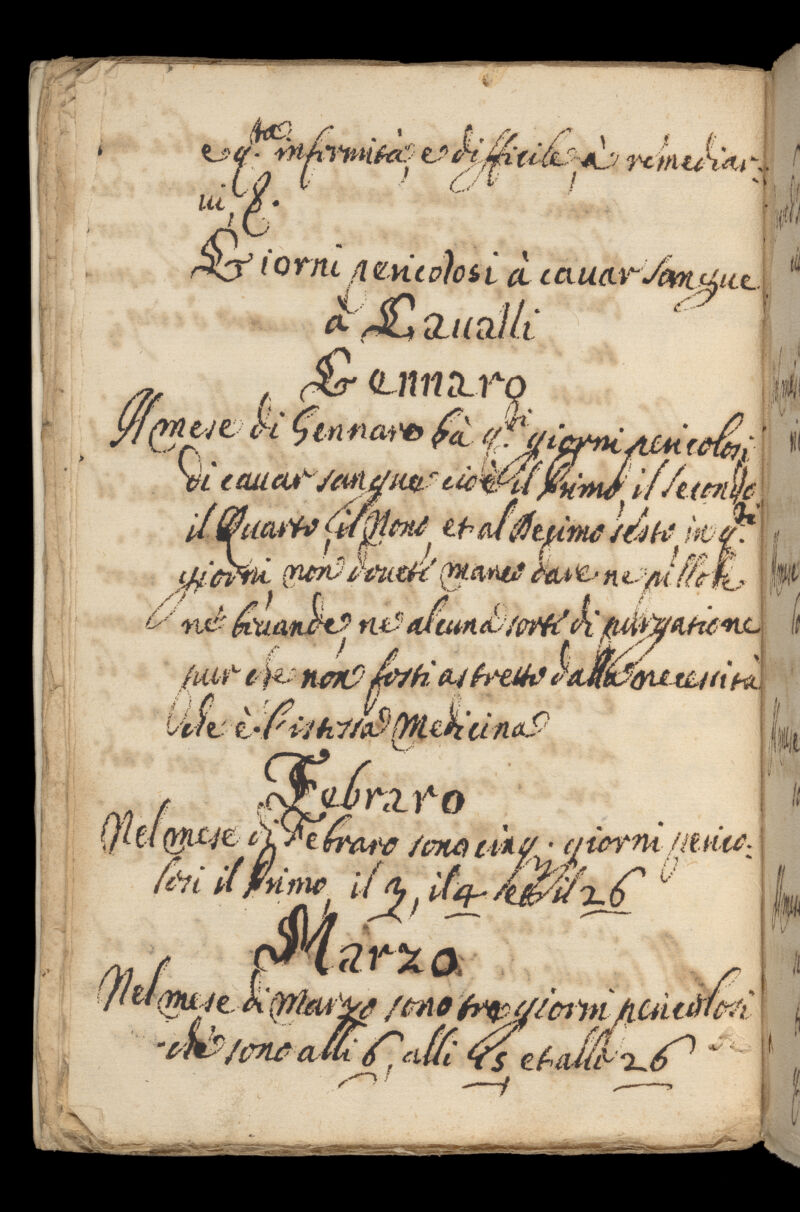 e q.ta infirmità, e difficile, à remediar-
ui, &.
Giorni pericolosi à cauar sangue
à Caualli
Gennaro
Il mese di Gennaro hà q.ti giorni pericolosi
di cauar sangue cioè il Primo, il secondo
il Quarto, il Nono, et al Decimo sesto, in q.ti
giorni non doueti manco dare ne pillole
ne beuande, ne alcuna sorte di purgatione
pur che non fosti astretto dalla necessità
che è l'istessa Medicina
Febraro
Nel mese di Febraro sono cinq. giorni perico-
losi il Primo, il 3, il 4 et il 26
Marzo
Nel mese di Marzo sono tre giorni pericolosi
che sono alli 6, alli 15, et alli 26